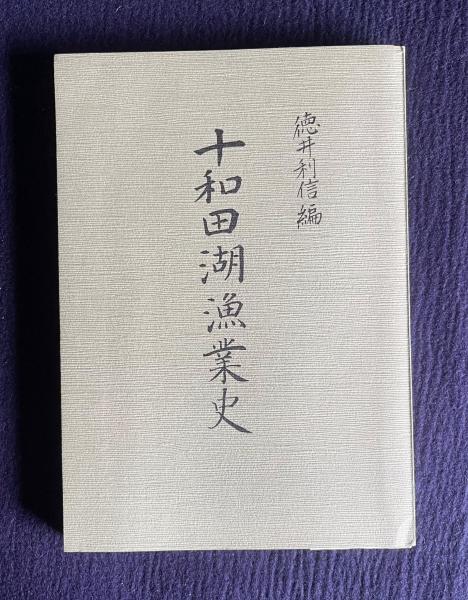 徳井利信編
十和田湖漁業史